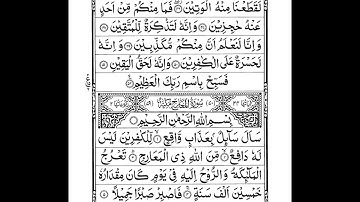 لَقَطَعْنَا مِنْهُ الْوَتِيْنَ ۝ فَمَا مِنْكُمْ مِّنْ اَحَدٍ
عَنْهُ حٰجِزِيْنَ ۝ وَاِنَّهٗ لَتَذْكِرَةٌ لِّلْمُتَّقِيْنَ ۝
وَاِنَّا لَنَعْلَمُ اَنَّ مِنْكُمْ مُّكَذِّبِيْنَ ۝ وَاِنَّهٗ
لَحَسْرَةٌ عَلَى الْكٰفِرِيْنَ ۝ وَاِنَّهٗ لَحَقُّ الْيَقِيْنِ ۝
فَسَبِّحْ بِاسْمِ رَبِّكَ الْعَظِيْمِ ۝
سُوْرَةُ الْمَعَارِجِ مَكِّيَّةٌ
بِسْمِ اللّٰهِ الرَّحْمٰنِ الرَّحِيْمِ ۝
سَاَلَ سَآئِلٌۢ بِعَذَابٍ وَّاقِعٍ ۝ لِّلْكٰفِرِيْنَ لَيْسَ
لَهٗ دَافِعٌ ۝ مِّنَ اللّٰهِ ذِى الْمَعَارِجِ ۝ تَعْرُجُ
الْمَلٰٓئِكَةُ وَالرُّوْحُ اِلَيْهِ فِيْ يَوْمٍ كَانَ مِقْدَارُهٗ
خَمْسِيْنَ اَلْفَ سَنَةٍ ۝ فَاصْبِرْ صَبْرًا جَمِيْلًا ۝